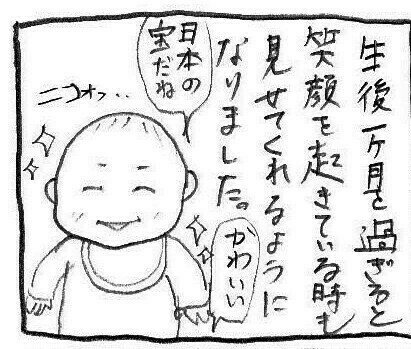 生後一ヶ月を過ぎると
笑顔を起きている時も
見せてくれるように
なりました。
日本の
宝だね
ニコォッ…
かわいい